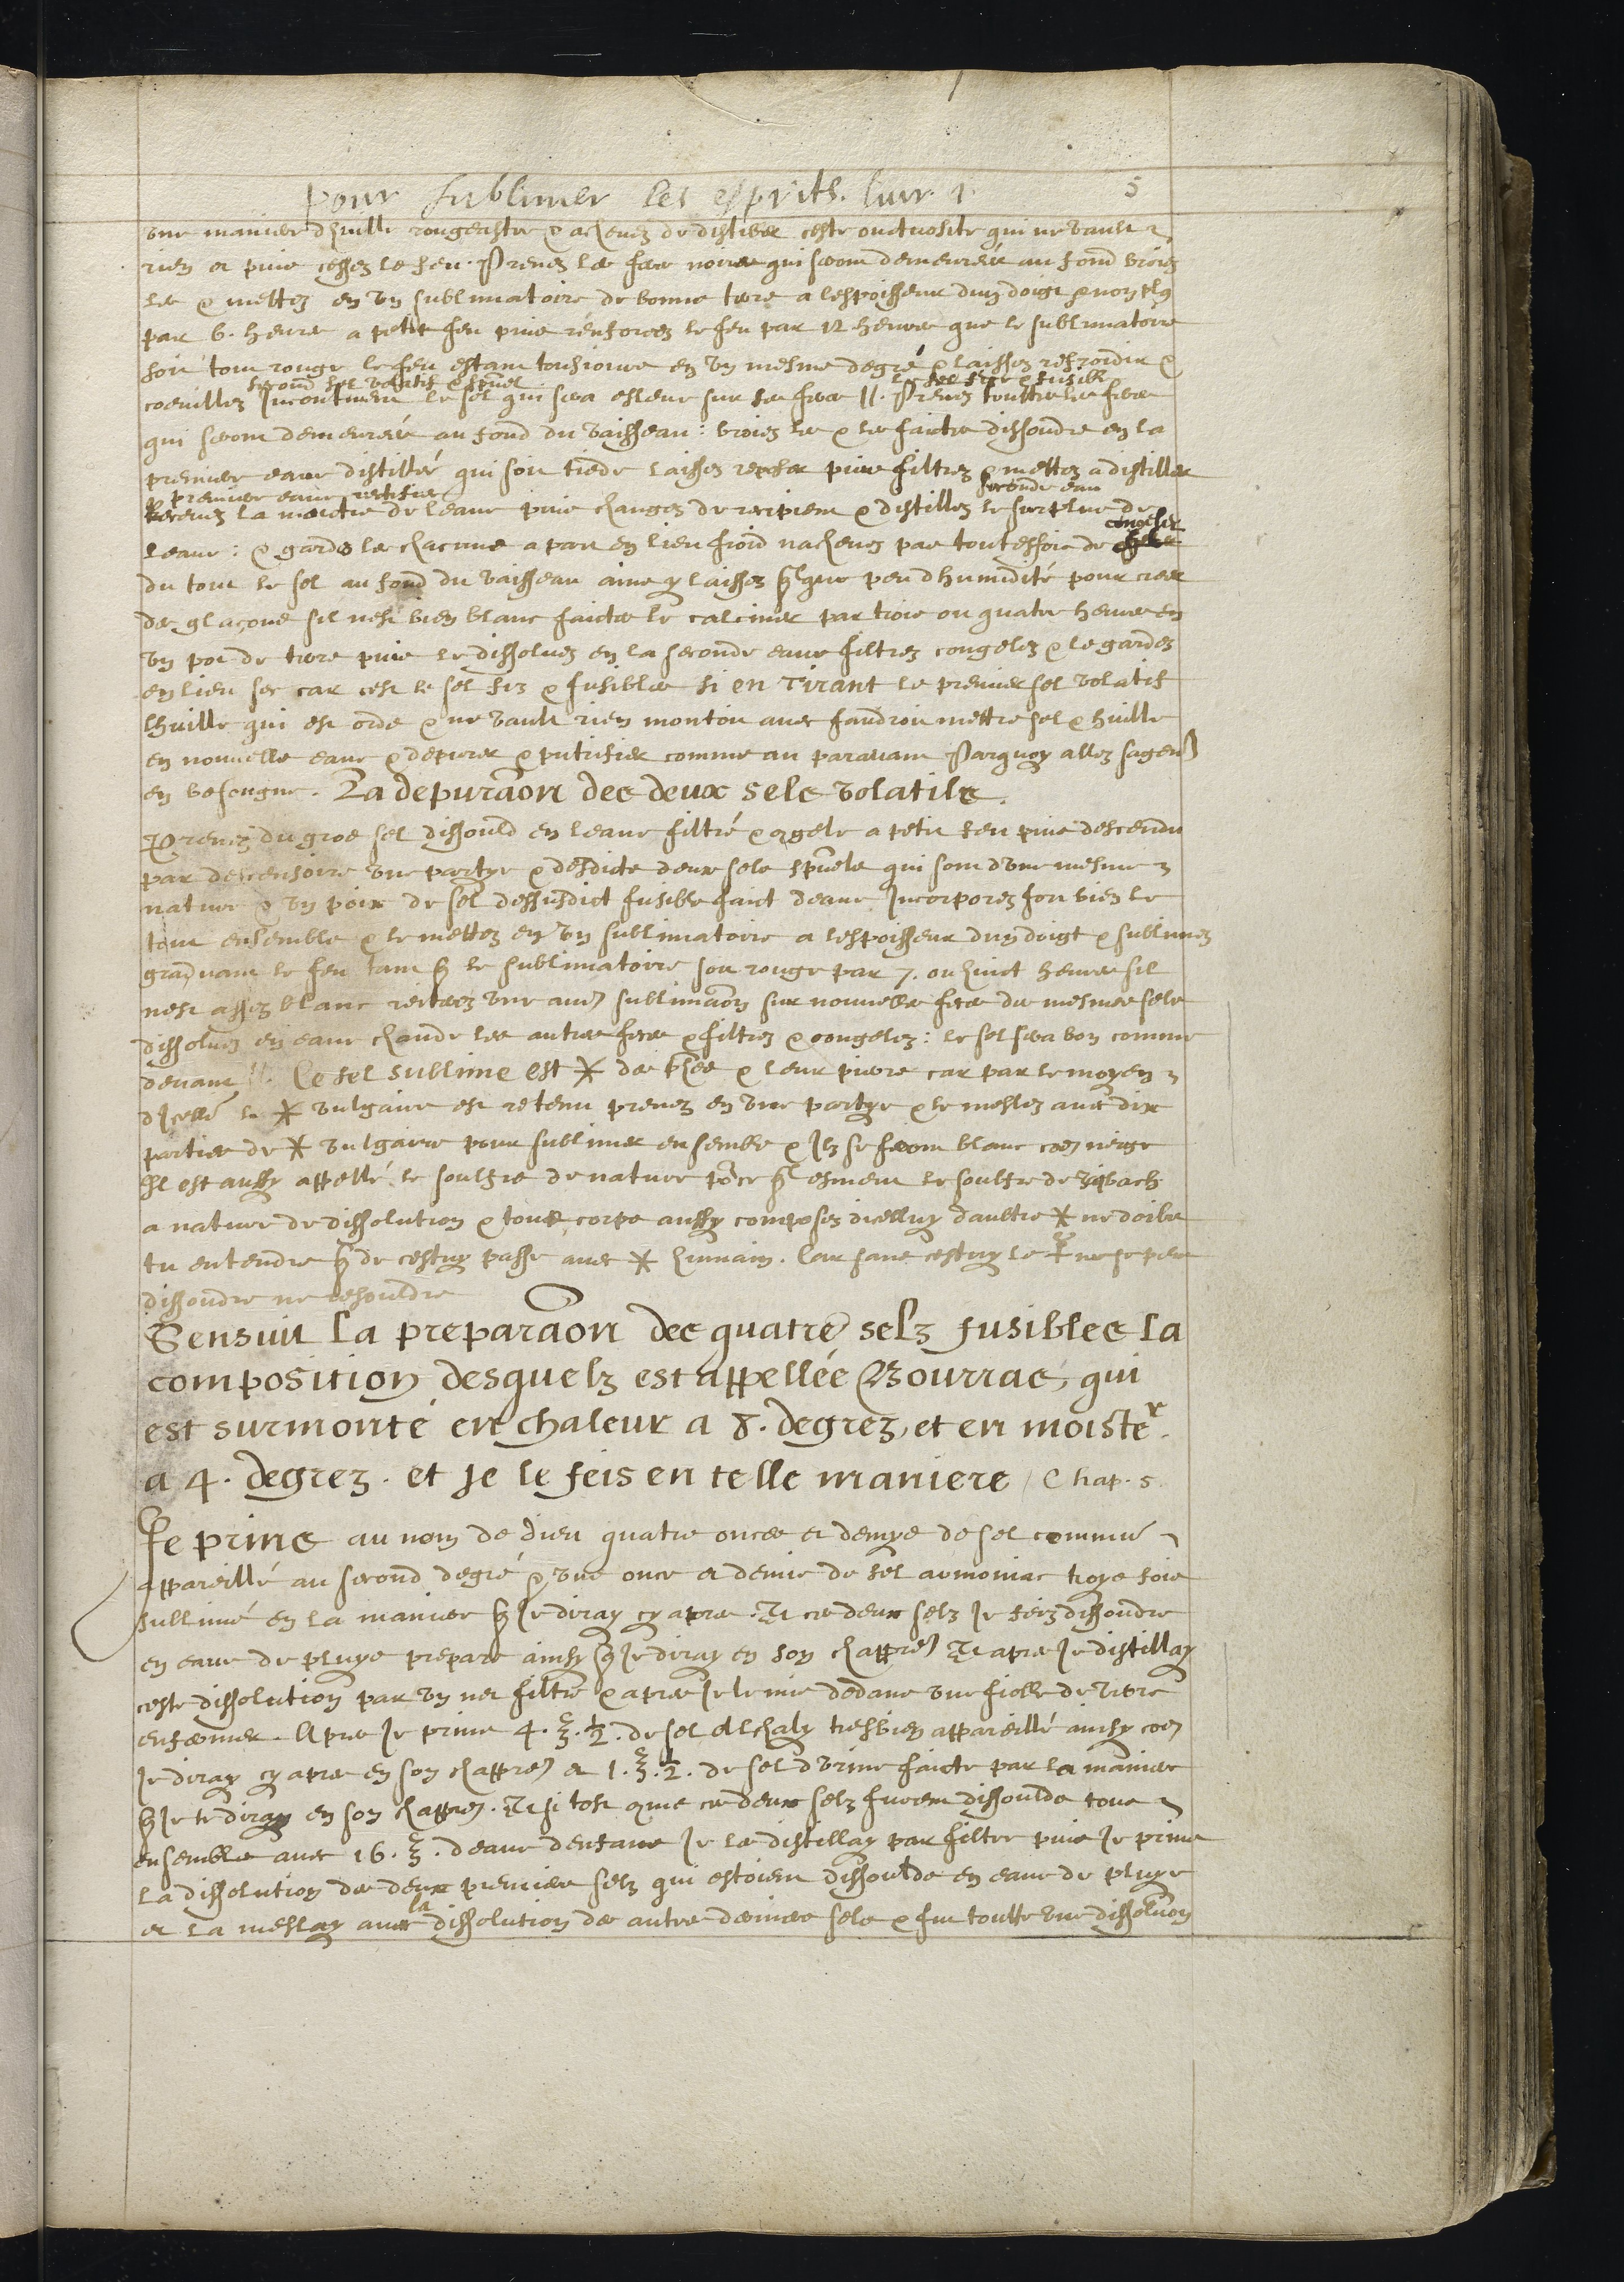 pour sublimer les esprits. livr. 1. 5
une manier dhuille rougeastre & achevez de distiler ceste onctuosite qui ne vault
rien et puis cessez le feu. Prenez les feces noires qui seront demeureés au fond broiez
les & mettez en un sublimatoire de bonne terre a lespoisseur dun doigt & non plus
par 6. heures a petit feu puis rénforcez le feu par 12 heures que le sublimatoire
soit tout rouge le feu estant tousiours en un mesme degré & laissez refroidir &
second sel volatif & spũel le sel fixe & fusible
coeuillez Incontinent le sel qui sera esleué sur les feces ||. Prenez touttes les feces
qui seront demeureés au fond du vaisseau: broiez les & les faictes dissoudre en la
premiere eaue distilleé qui soit tiede laissez puis filtrez & mettez a distiller
premiere eaue rectifiee seconde eau
Recevez la moictie de leaue puis changez de recipient & distillez le surplus de
congeler
leaue: & gardes les chacune a part en lieu froid nachevez pas touteffois de
du tout le sel au fond du vaisseau ains y laissez q̃lque peu dhumidité pour creer
des glaçons sil nest bien blanc faictes le calciner par trois ou quatre heures en
un pot de terre puis le dissolvez en la seconde eaue filtrez congelez & le gardez
en lieu sec car cest le sel fix & fusible si en Tirant le premier sel volatif
lhuille qui est orde & ne vault rien montoit avec faudroit mettre sel & huille
en nouvelle eaue & depurer & putrifier comme au paravant Parquoy allez sagemt
en besongne. La depuraõn des deux sels volatils.
Prenez du gros sel dissould en leaue filtré & congele a petit feu puis descendu
par descensoire une partye & desdicts deux sels spũels qui sont dune mesme
nature & un poix de sel dessusdict fusible faict deaue Incorporez fort bien le
tout ensemble & le mettez en un sublimatoire a lespoisseur dun doigt & sublimez
graduant le feu tant q̃ le sublimatoire soit rouge par 7. ou huict heures sil
nest assez blanc reiterez une autre sublimaõn sur nouvelles feces des mesmes sels
dissolvez en eaue chaude les autres feces & filtrez & congelez: le sel sera bon comme
devant ||. Ce sel sublime est ✱ des & leur pierre car par le moyen
dIcelle le ✱ vulgaire est retenu prenez en une partye & le meslez avec dix
parties de ✱ vulgaire pour sublimer ensemble & Ilz se feront blanc coẽ neige
Il est aussy appellé le soulfre de nature pource q̃l esmeut le soulfre de
a nature de dissolution & tout corps aussy composez dicelluy daultre ✱ ne doibs
tu entendre q̃ de cestuy passe avec ✱ humain. Car sans cestuy le ne se peut
dissoudre ne resouldre
Sensuit la preparaõn des quatre selz fusibles la
composition desquelz est appellée Bourrac, qui
est surmonté en chaleur a 8. degrez, et en moiste^r.
a 4. degrez. et Je le feis en telle maniere / Chap. 5
Je prins au nom de dieu quatre onces et demye de sel commũ
appareillé au second degré & une once et demie de sel armoniac troys fois
sublimé en la maniere q̃ Je diray cy apres. Et ces deux selz Je feiz dissoudre
en eaue de pluye prepare ainsy q̃ Je diray en son chappre Et apres Je distillay
ceste dissolution par un net filtre & apres Je le mis dedans une fiolle de verre
enfermer. Apres Je prins 4. ℥. ½. de sel Alchaly tresbien appareillé ainsy coẽ
Je diray cy apres en son chappre et 1. ℥. ½. de sel durine faicte par la maniere
q̃ Je te diray en son chappre. Et si tost que ces deux selz furent dissoulds tous
ensemble avec 16. ℥. deaue denfans Je les distillay par filtre puis Je prins
la dissolution des deux premiers selz qui estoient dissoulds en eaue de pluye
la
et la meslay avec dissolution des autres derniers sels & fut toutte une dissoluõn